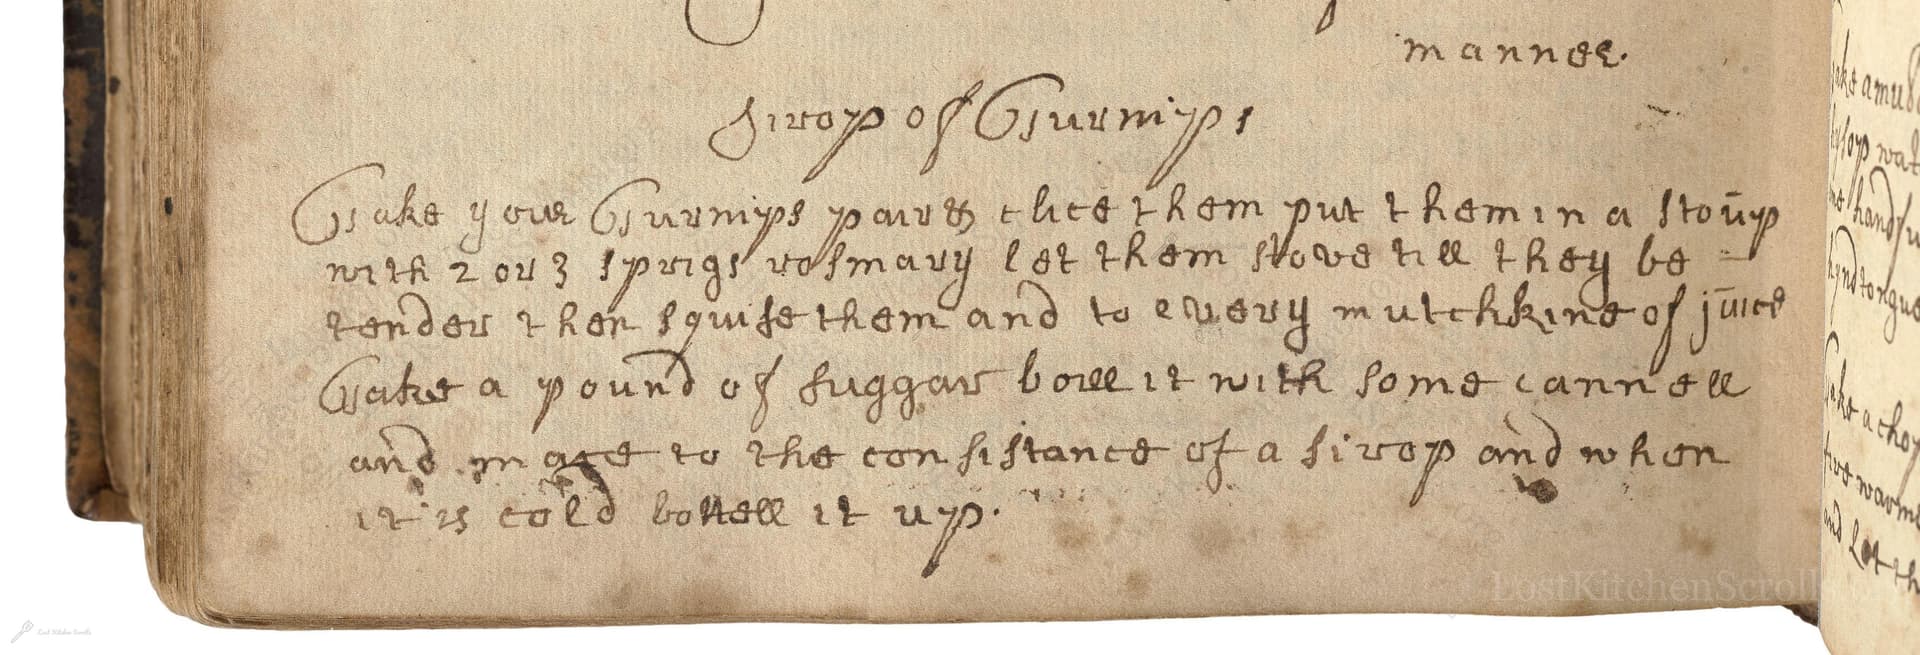 manner.
Sirop of Turnips
Take your Turnips pair & slice them put them in a stoūp
with 2 or 3 sprigs rosmary let them stove till they be
tender then squise them and to every mutchkine of jūice
Take a pound of suggar boill it with some cannell
and mace to the consistance of a sirop and when
it is cold bottell it up.
ake a mu
sop wat
hand
tongue
Take a chop
warm
and Let th
LostKitchenScrolls
Lost Kitchen Scrolls